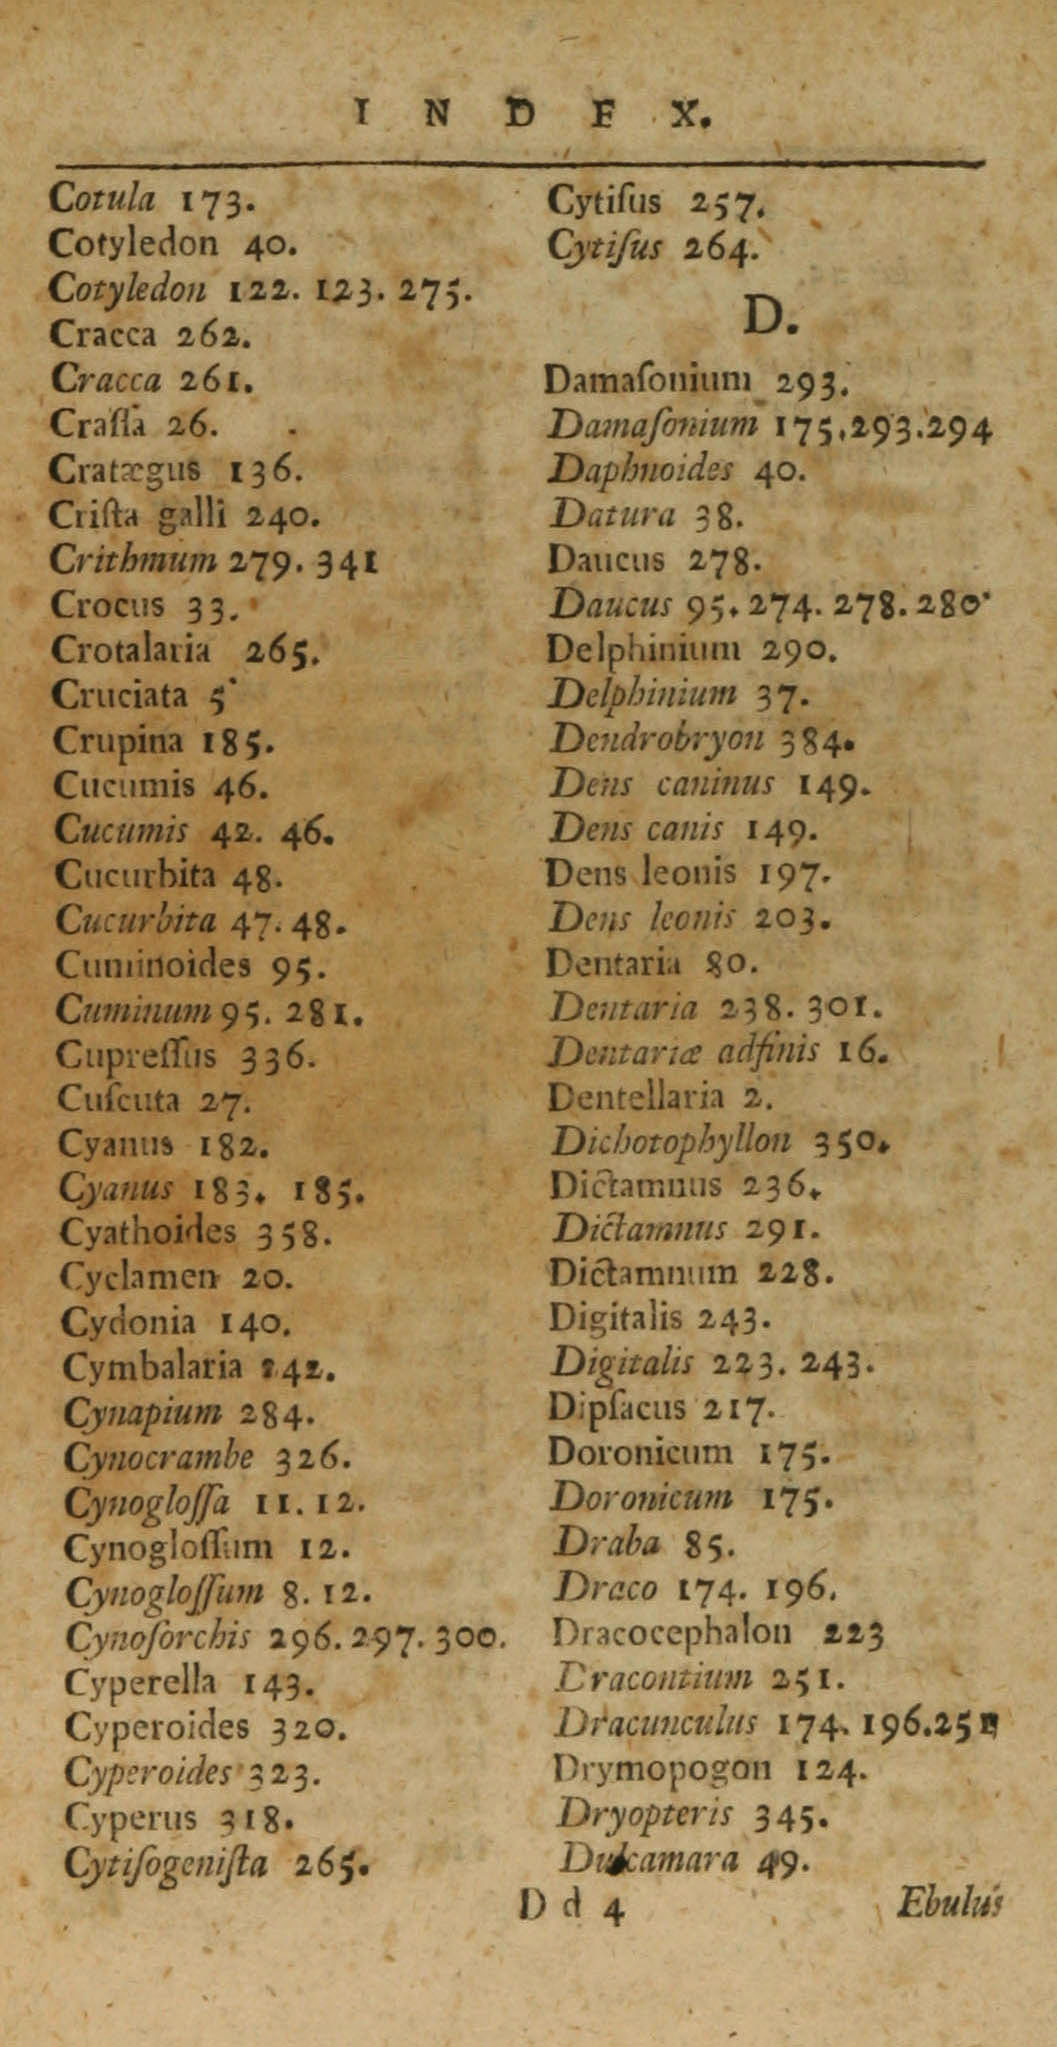 INDEX.
Cotula 173.
Cotyledon 40.
Cotyledon 122. 123. 275.
Cracca 262.
Cracca 261.
Craſſa 26.
Cratægus 136.
Criſta galli 240.
Crithmum 279. 341
Crocus 33.
Crotalaria 265.
Cruciata 5.
Crupina 185.
Cucumis 46.
Cucumis 42. 46.
Cucurbita 48.
Cucurbita 47. 48.
Cuminoides 95.
Cuminum 95. 281.
Cupreſſus 336.
Cuſcuta 27.
Cyanus 182.
Cyanus 183. 185.
Cyathoides 358.
Cyclamen 20.
Cydonia 140.
Cymbalaria 242.
Cynapium 284.
Cynocrambe 326.
Cynogloſſa 11. 12.
Cynogloſſum 12.
Cynogloſſum 8. 12.
Cynoſorchis 296. 297. 300.
Cyperella 143.
Cyperoides 320.
Cyperoides 323.
Cyperus 318.
Cytiſogeniſta 265.
Cytiſus 257.
Cytiſus 264.
D.
Damaſonium 293.
Damaſonium 175.293.294
Daphnoides 40.
Datura 38.
Daucus 278.
Daucus 95. 274. 278. 280.
Delphinium 290.
Delphinium 37.
Dendrobryon 384.
Dens caninus 149.
Dens canis 149.
Dens leonis 197.
Dens leonis 203.
Dentaria 80.
Dentaria 238. 301.
Dentariæ adfinis 16.
Dentellaria 2.
Dichotophyllon 350.
Dictamnus 236.
Dictamnus 291.
Dictamnum 228.
Digitalis 243.
Digitalis 223. 243.
Dipſacus 217.
Doronicum 175.
Doronicum 175.
Draba 85.
Draco 174. 196.
Dracocephalon 223
Dracontium 251.
Dracunculus 174. 196.251
Drymopogon 124.
Dryopteris 345.
Dulcamara 49.
D d 4 Ebulus